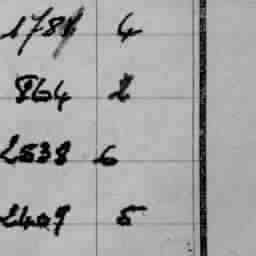 178 4
864 2
2538 6
2409 5